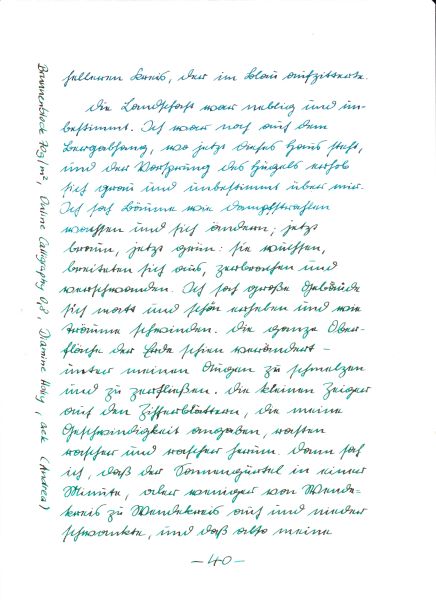 helleren Kreis, der im Blau aufzitterte.
Die Landschaft war neblig und un-
bestimmt. Ich war noch auf dem
Bergabhang, wo jetzt dieses Haus steht,
und der Vorsprung des Hügels erhob
sich grau und unbestimmt über mir.
Ich sah Bäume wie Dampfstrahlen
wachsen und sich ändern; jetzt
braun, jetzt grün: sie wuchsen,
breiteten sich aus, zerbrachen und
verschwanden. Ich sah große Gebäude
sich matt und schön erheben und wie
Träume schwinden. Die ganze Ober-
fläche der Erde schien verändert –
unter meinen Augen zu schmelzen
und zu zerfließen. Die kleinen Zeiger
auf den Zifferblättern, die meine
Geschwindigkeit angaben, rasten
rascher und rascher herum. Dann sah
ich, daß der Sonnengürtel in einer
Minute, oder weniger von Wende-
kreis zu Wendekreis auf und nieder
schwankte, und daß also meine
– 40 –
70g/m², Online Calligraphy 0,8, Diamine (Andrea)